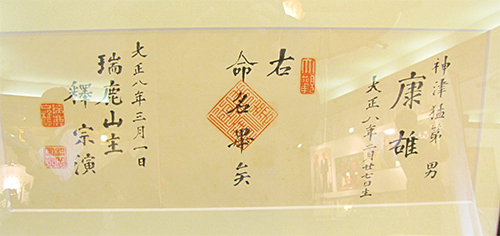 神津猛第 男
康雄
大正八年二月廿七日生
右
命名畢矣
大正八年三月一日
瑞鹿山主
釋宗演